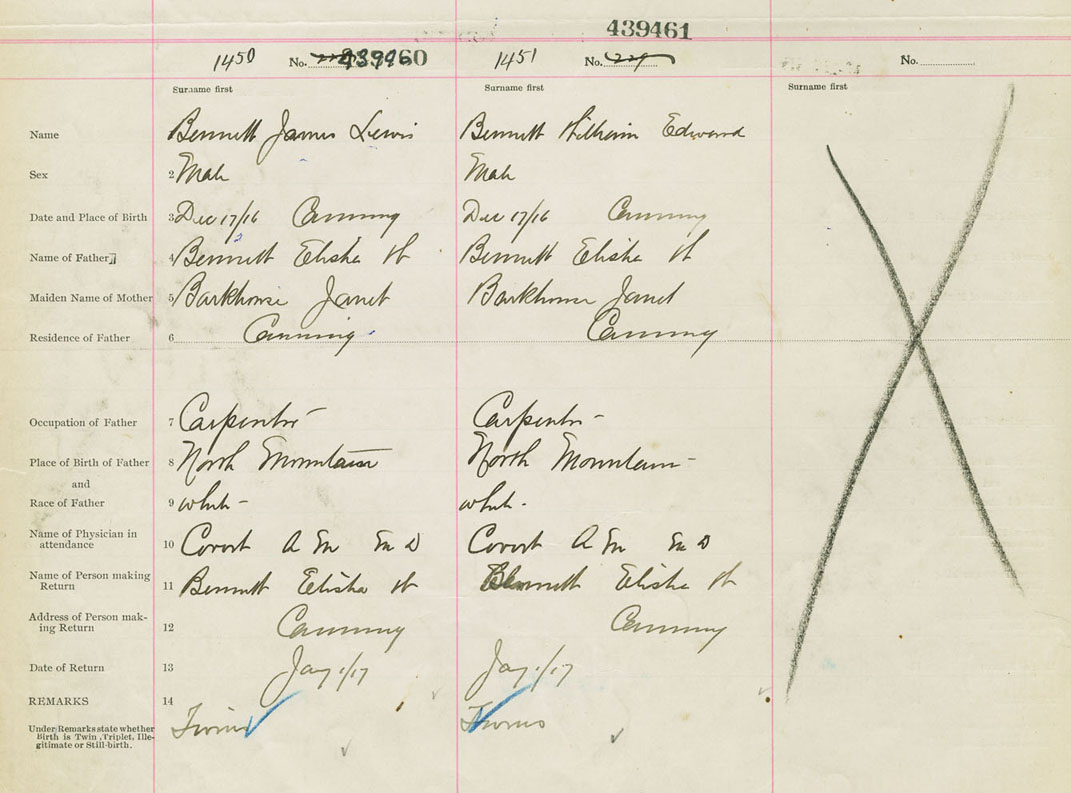 439461
1450 No. 439460 1451 No. No.
Surname first Surname first Surname first
Name Bennett James Lewis Bennett William Edward
Sex 2 Male Male
Date and Place of Birth 3 Dec 17/16 Canning Dec 17/16 Canning
Name of Father 4 Bennett Elisha W Bennett Elisha W
Maiden Name of Mother 5 Barkhouse Janet Barkhouse Janet
Residence of Father 6 Canning Canning
Occupation of Father 7 Carpenter Carpenter
Place of Birth of Father 8 North Mountain North Mountain
and
Race of Father 9 white white
Name of Physician in
attendance 10 Covert A M M D Covert A M M D
Name of Person making
Return 11 Bennett Elisha W Bennett Elisha W
Address of Person mak-
ing Return 12 Canning Canning
Date of Return 13 Jany 1/17 Jany 1/17
REMARKS 14
Twins Twins
Under Remarks state whether
Birth is Twin, Triplet, Ille-
gitimate or Still-birth.